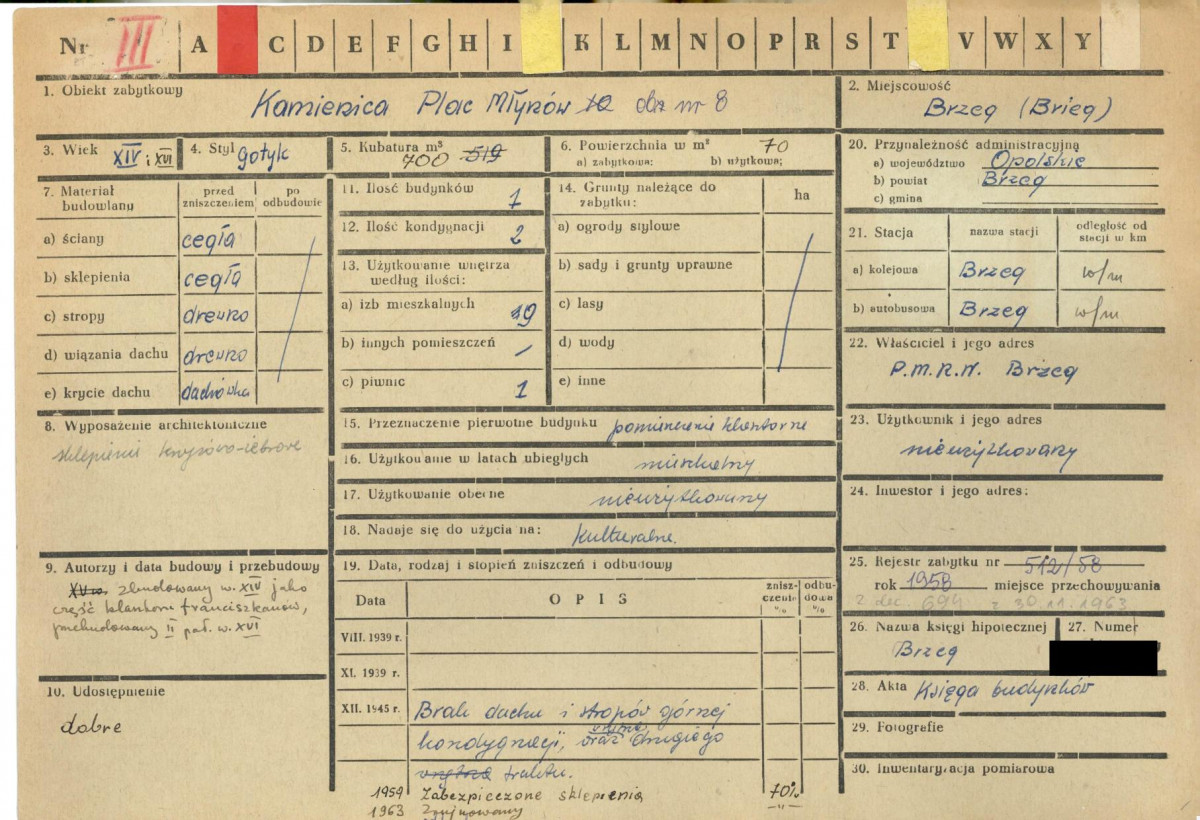 Nr III A C D E F G H I K L M N O P R S T V W X Y
1. Obiekt zabytkowy Kamienica Plac Młynów 10 dz nr 8
2. Miejscowość
Brzeg (Brieg)
3. Wiek XIV i XVI
4. Styl gotyk
5. Kubatura m³
700 519
6. Powierzchnia w m² 70
a) zabytkowa; b) użytkowa;
7. Materiał budowlany
przed zniszczeniem
po odbudowie
a) ściany cegła
b) sklepienia cegła
c) stropy drewno
d) wiązania dachu drewno
e) krycie dachu dachówka
8. Wyposażenie architektoniczne
sklepienie krzyżowo-żebrowe
9. Autorzy i data budowy i przebudowy
zbudowany w. XIV jako
część klasztoru franciszkanów,
przebudowany II poł. w. XVI
10. Udostępnienie
dobre
11. Ilość budynków 1
12. Ilość kondygnacji 2
13. Użytkowanie wnętrza
według ilości:
a) izb mieszkalnych 19
b) innych pomieszczeń /
c) piwnic 1
14. Grunty należące do
zabytku:
ha
a) ogrody stylowe
b) sady i grunty uprawne
c) lasy
d) wody
e) inne
15. Przeznaczenie pierwotne budynku pomieszczenie klasztorne
16. Użytkowanie w latach ubiegłych mieszkalny
17. Użytkowanie obecne nieużytkowany
18. Nadaje się do użycia na: kulturalne.
19. Data, rodzaj i stopień zniszczeń i odbudowy
Data OPIS zniszczenia % odbudowa %
VIII. 1939 r.
XI. 1939 r.
XII. 1945 r. Brak dachu i stropów górnej
kondygnacji, oraz drugiego
wnętrza traktu.
1959 Zabezpieczone sklepienia 70%
1963 Zrujnowany -"-
20. Przynależność administracyjna
a) województwo Opolskie
b) powiat Brzeg
c) gmina
21. Stacja
nazwa stacji
odległość od stacji w km
a) kolejowa Brzeg w/m
b) autobusowa Brzeg w/m
22. Właściciel i jego adres
P.M.R.N. Brzeg
23. Użytkownik i jego adres
nieużytkowany
24. Inwestor i jego adres:
25. Rejestr zabytku nr 512/58
rok 1958 miejsce przechowywania
z dec. 694 z 30.11.1963
26. Nazwa księgi hipotecznej
Brzeg
27. Numer
28. Akta Księga budynków
29. Fotografie
30. Inwentaryzacja pomiarowa